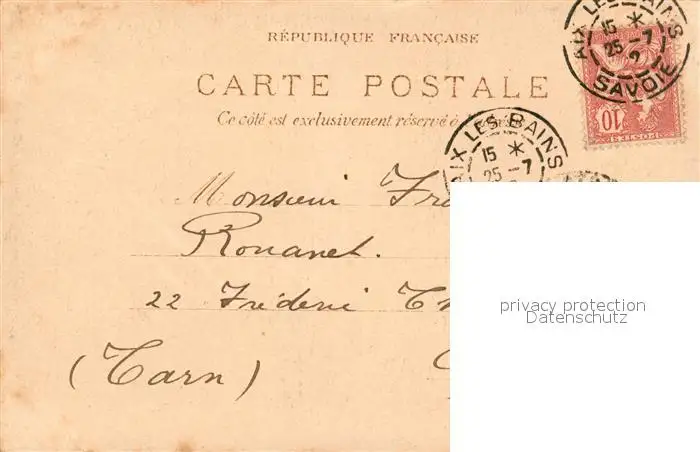 RÉPUBLIQUE FRANÇAISE
CARTE POSTALE
Ce côté est exclusivement réservé à
AIX LES BAINS
15 *
25 - 7
2
SAVOIE
10
POSTES
AIX LES BAINS
15 *
25 - 7
Monsieur Fra
Rouanet.
22 Fréderic Th
(Tarn)
privacy protection
Datenschutz